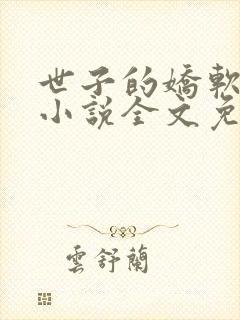 世子的嬌軟
小說全文免
雲舒蘭